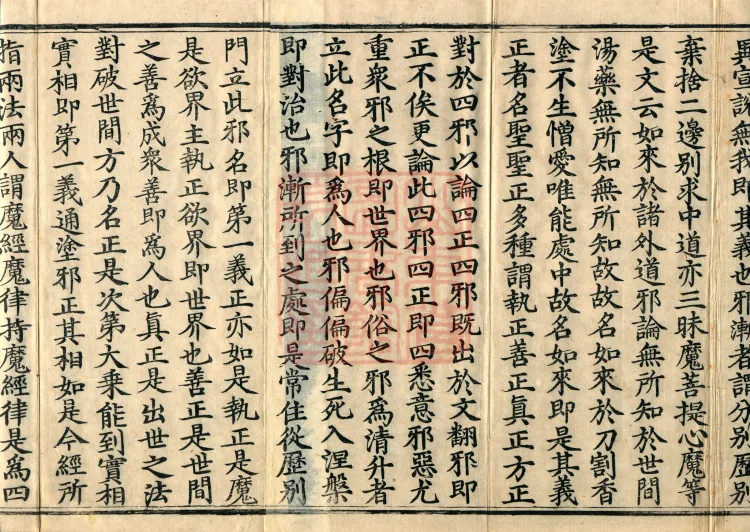 異宣説無我即其義也邪漸者謂分別歷別
棄捨二邊別求中道亦三昧魔菩提心魔等
是文云如來於諸外道邪論無所知於世間
湯藥無所知無所知故故名如來於刀割香
塗不生憎愛唯能處中故名如來即是其義
正者名聖聖正多種謂執正善正真正方正
對於四邪以論四正四邪既出於文翻邪即
正不俟更論此四邪四正即四悉意邪惡尤
重衆邪之根即世界也邪俗之邪為清升者
立此名字即為人也邪偏偏破生死入涅槃
即對治也邪漸所到之處即是常住從歷別
門立此邪名即第一義正亦如是執正是魔
是欲界主執正欲界即世界也善正是世間
之善為成衆善即為人也真正是出世之法
對破世間方乃名正是次第大乗能到實相
實相即第一義通塗邪正其相如是今經所
指兩法兩人謂魔經魔律持魔經律是為四